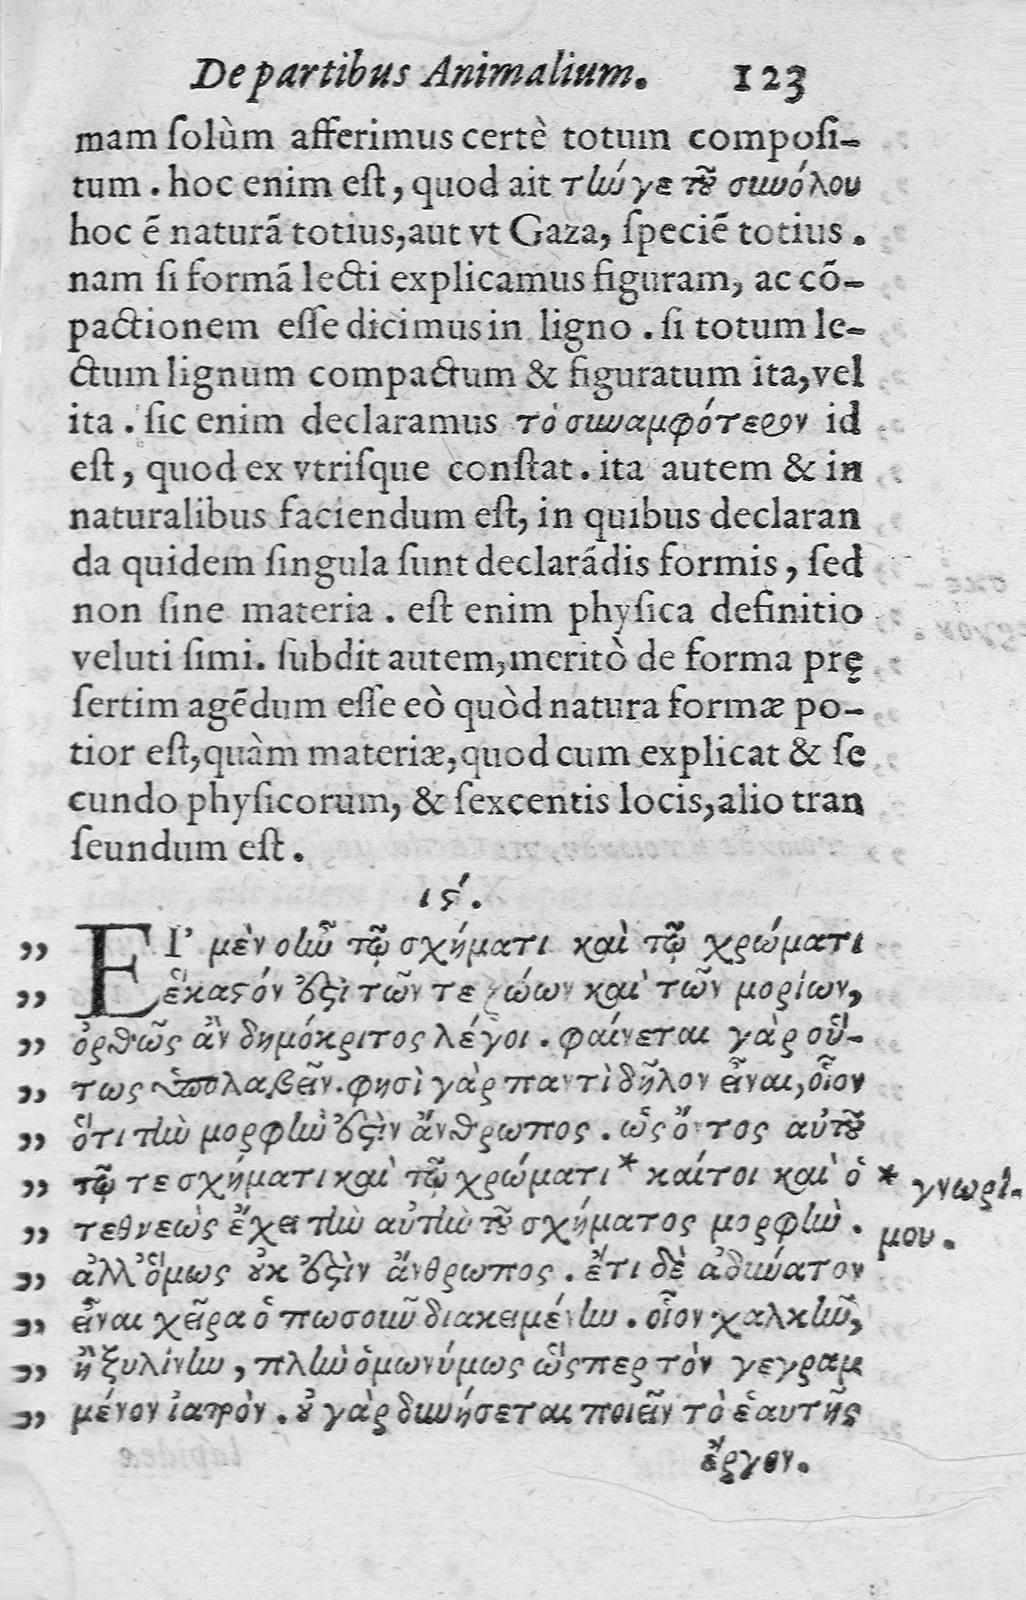 De partibus Animalium. 123
mam ſolùm afferimus certè totum compoſi-
tum . hoc enim eſt, quod ait τήν γε τοῦ συνόλου
hoc ē naturā totius, aut vt Gaza, ſpeciē totius .
nam ſi formā lecti explicamus figuram, ac cō-
pactionem eſſe dicimus in ligno . ſi totum le-
ctum lignum compactum & figuratum ita, vel
ita . ſic enim declaramus τὸ συναμφότερον id
eſt, quod ex vtriſque conſtat . ita autem & in
naturalibus faciendum eſt, in quibus declaran
da quidem ſingula ſunt declarādis formis, ſed
non ſine materia . eſt enim phyſica definitio
veluti ſimi. ſubdit autem, meritò de forma prę
ſertim agēdum eſſe eò quòd natura formæ po-
tior eſt, quàm materiæ, quod cum explicat & ſe
cundo phyſicorum, & ſexcentis locis, alio tran
ſeundum eſt.
ιϛʹ.
„ ΕΙ᾽ μὲν οὖν τῷ σχήματι καὶ τῷ χρώματι
„ ἕκαστόν ἐστι τῶν τε ζώων καὶ τῶν μορίων,
„ ὀρθῶς ἂν δημόκριτος λέγοι . φαίνεται γὰρ οὕ-
„ τως ὑπολαβεῖν. φησὶ γὰρ παντὶ δῆλον εἶναι, οἷον
„ ὅτι τὴν μορφὴν ἐστὶν ἄνθρωπος . ὡς ὄντος αὐτοῦ
„ τῷ τε σχήματι καὶ τῷ χρώματι * καίτοι καὶ ὁ * γνωρί-
„ τεθνεὼς ἔχει τὴν αὐτὴν τοῦ σχήματος μορφὴν . μου.
„ ἀλλ᾽ ὅμως οὐκ ἐστὶν ἄνθρωπος . ἔτι δὲ ἀδύνατον
„ εἶναι χεῖρα ὁπωσοῦν διακειμένην . οἷον χαλκῆν,
„ ἢ ξυλίνην, πλὴν ὁμωνύμως ὥσπερ τὸν γεγραμ
„ μένον ἰατρὸν . οὐ γὰρ δυνήσεται ποιεῖν τὸ ἑαυτῆς
ἔργον.